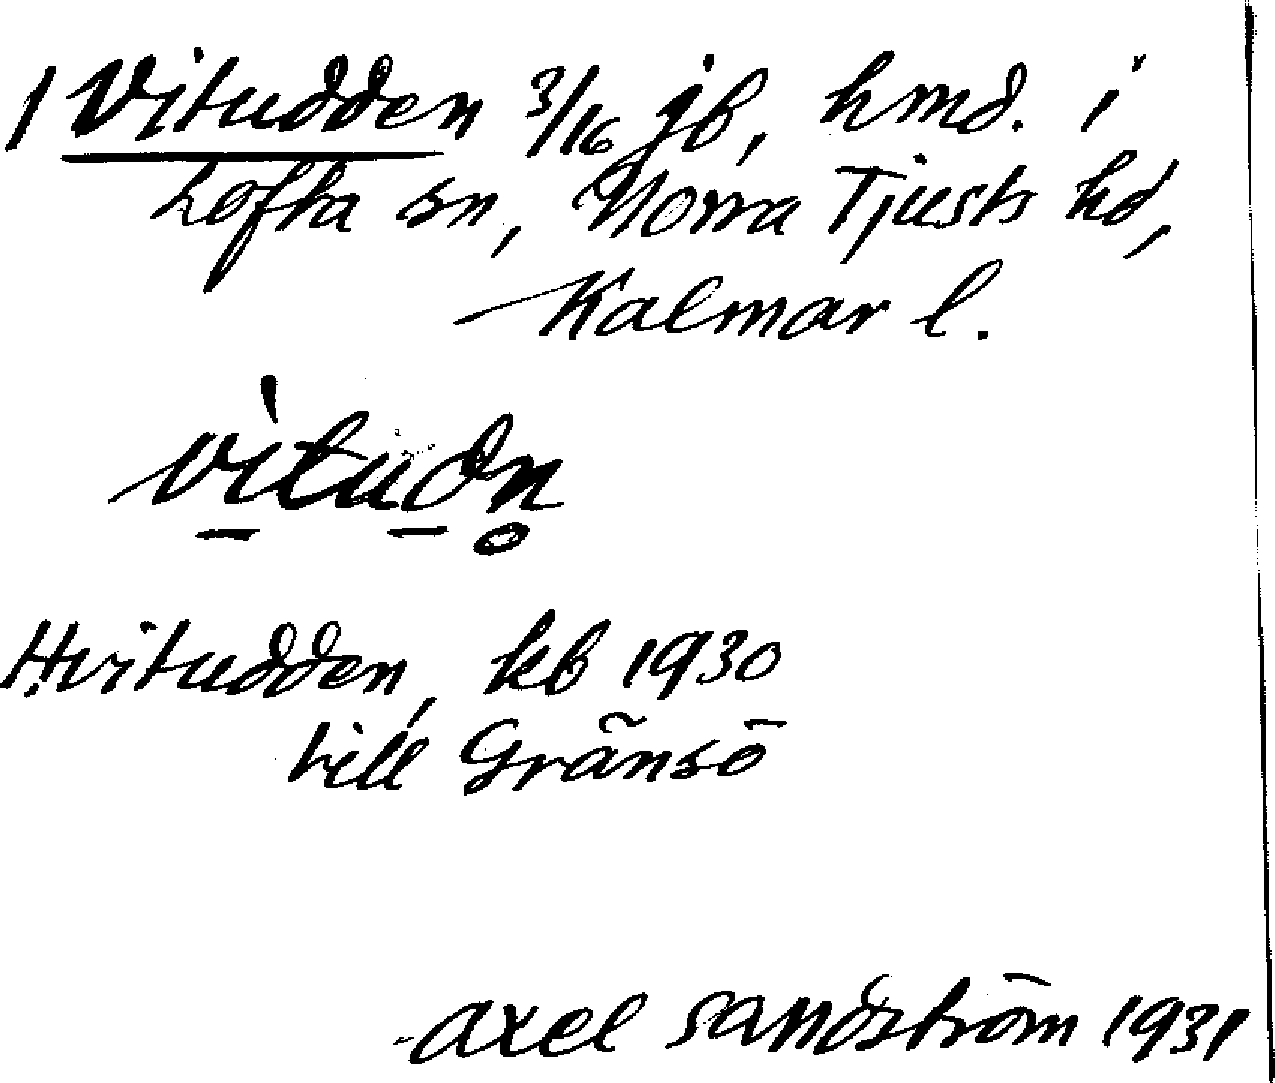 1 Vitudden 3/16 jb, hmd. i
Lofta sn, Norra Tjusts hd,
Kalmar l.
vi̱tu̱dn̥
Hvitudden, kb 1930
till Gränsö
Axel Sandström 1931